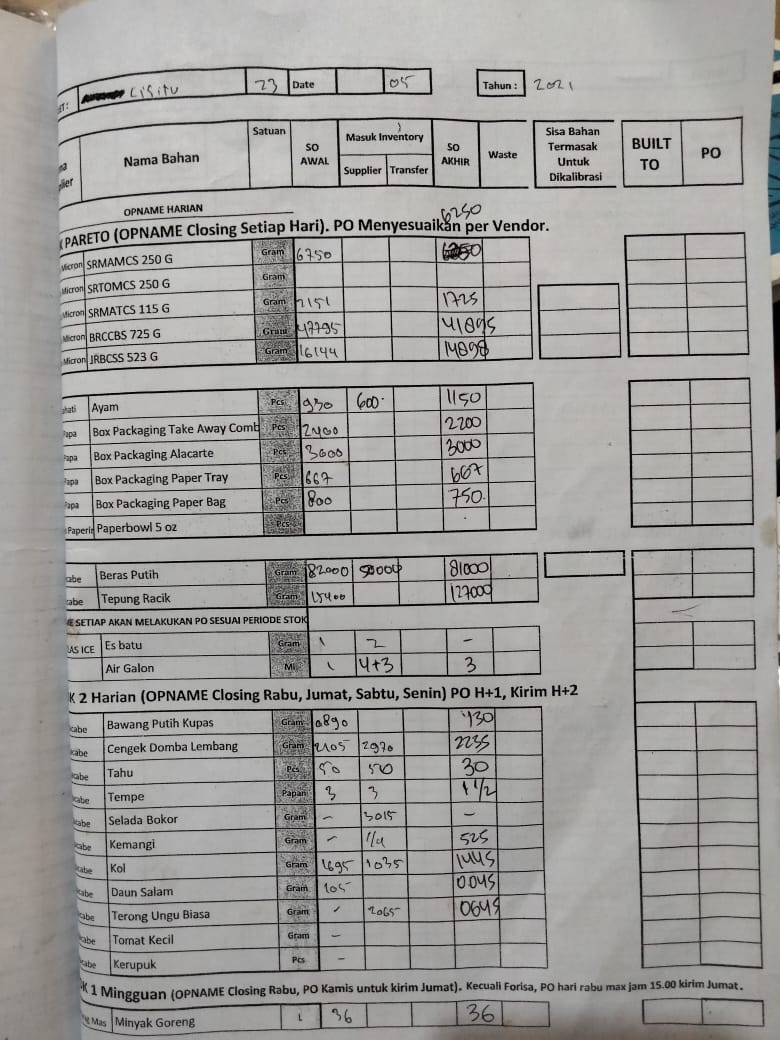 ET: Cisitu 23 Date 05 Tahun : 2021
Nama Bahan Satuan SO AWAL Masuk Inventory Supplier Transfer SO AKHIR Waste Sisa Bahan Termasak Untuk Dikalibrasi BUILT TO PO
OPNAME HARIAN
K PARETO (OPNAME Closing Setiap Hari). PO Menyesuaikan per Vendor.
Micron SRMAMCS 250 G Gram 6750 6250
Micron SRTOMCS 250 G Gram
Micron SRMATCS 115 G Gram 2151 1725
Micron BRCCBS 725 G Gram 47795 41895
Micron JRBCSS 523 G Gram 16144 14898
Ayam Pcs 930 600 1150
Papa Box Packaging Take Away Comb Pcs 2400 2200
Papa Box Packaging Alacarte Pcs 3000 3000
Papa Box Packaging Paper Tray Pcs 667 667
Papa Box Packaging Paper Bag Pcs 800 750
Paperbowl 5 oz Pcs
cabe Beras Putih Gram 82000 50000 81000
cabe Tepung Racik Gram 15400 127000
E SETIAP AKAN MELAKUKAN PO SESUAI PERIODE STOK
AS ICE Es batu Gram 1 2 -
Air Galon Ml 1 4+3 3
K 2 Harian (OPNAME Closing Rabu, Jumat, Sabtu, Senin) PO H+1, Kirim H+2
cabe Bawang Putih Kupas Gram 0890 430
cabe Cengek Domba Lembang Gram 2105 2970 2235
cabe Tahu Pcs 50 50 30
cabe Tempe Papan 3 3 1 1/2
cabe Selada Bokor Gram - 3015 -
cabe Kemangi Gram - 1/4 525
cabe Kol Gram 1695 1035 1445
cabe Daun Salam Gram 105 0045
cabe Terong Ungu Biasa Gram - 2065 0645
cabe Tomat Kecil Gram -
cabe Kerupuk Pcs -
K 1 Mingguan (OPNAME Closing Rabu, PO Kamis untuk kirim Jumat). Kecuali Forisa, PO hari rabu max jam 15.00 kirim Jumat.
g Mas Minyak Goreng L 36 36